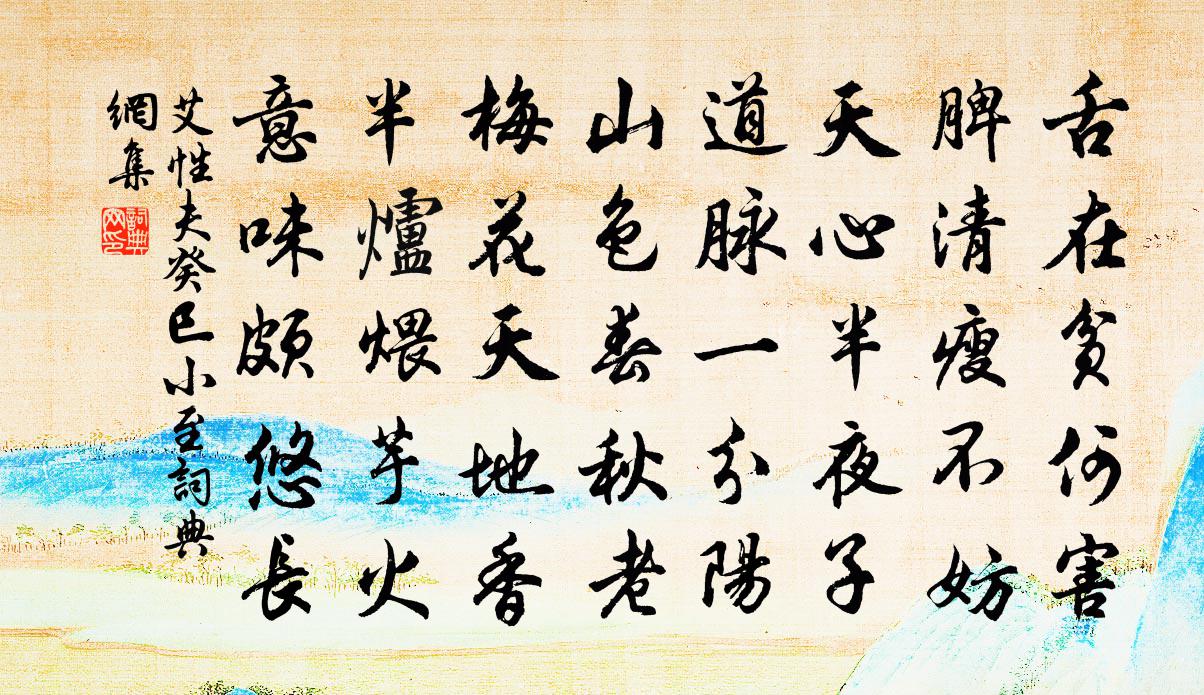 舌在貧何害
脾清瘦不妨
天心半夜子
道脉一分陽
山色春秋老
梅花天地香
半爐煨芋火
意味頗悠長
艾性夫癸巳小至詞典
網集
詞典
网印